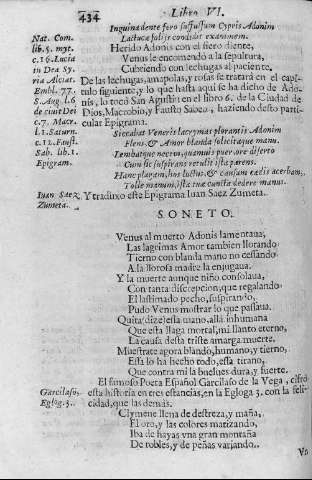 434
Libro VI.
Inguina dente fero suffossum Cypris Adonim
Lactucæ folijs condidit exanimem.
Herido Adonis con el fiero diente,
Venus le encomendò a la sepultura,
Cubriendo con lechugas al paciente.
De las lechugas, amapolas, y rosas se tratarà en el capi-
tulo siguiente, y lo que hasta aqui se ha dicho de Ado-
nis, lo tocò San Agustin en el libro 6. de la Ciudad de
Dios, Macrobio, y Fausto Sabeo, haziendo desto parti-
cular Epigrama.
Nat. Com.
lib. 5. myt.
c. 16. Lucia
in Dea Sy-
ria Alciat.
Embl. 77.
S. Aug. l. 6
de ciuit Dei
c. 7. Macr.
l. 1. Saturn.
c. 12. Faust.
Sab. lib. 1.
Epigram.
Siccabat Veneris lacrymas plorantis Adonim
Flens, & Amor blanda solicitaque manu.
Tum suspirans retulit ista parens.
Hanc plagam, hos luctus, & causam cædis acerbam,
Tolle manum, ista tuæ cuncta dedere manus.
Iuan Saez
Zumeta.
Y traduxo este Epigrama Iuan Saez Zumeta.
SONETO.
Venus al muerto Adonis lamentaua,
Las lagrimas Amor tambien llorando
Tierno con blanda mano no cessando
A la llorosa madre la enjugaua.
Y la muerte aunque niño consolaua,
Con tanta discrecion, que regalando
El lastimado pecho, suspirando,
Pudo Venus mostrar lo que passaua.
Quita (dize) essa mano, allà inhumana
Que esta llaga mortal, mi llanto eterno,
La causa desta triste amarga muerte.
Muestrate agora blando, humano, y tierno,
Essa lo ha hecho todo, essa tirano,
Que contra mi la buelues dura, y fuerte.
El famoso Poeta Español Garcilaso de la Vega, cifrò
esta historia en tres estancias, en la Egloga 3. con la feli-
cidad, que las demàs.
Garcilaso,
Eglog. 3.
Clymene llena de destreza, y maña,
El oro, y las colores matizando,
Iba de hayas vna gran montaña
De robles, y de peñas variando,